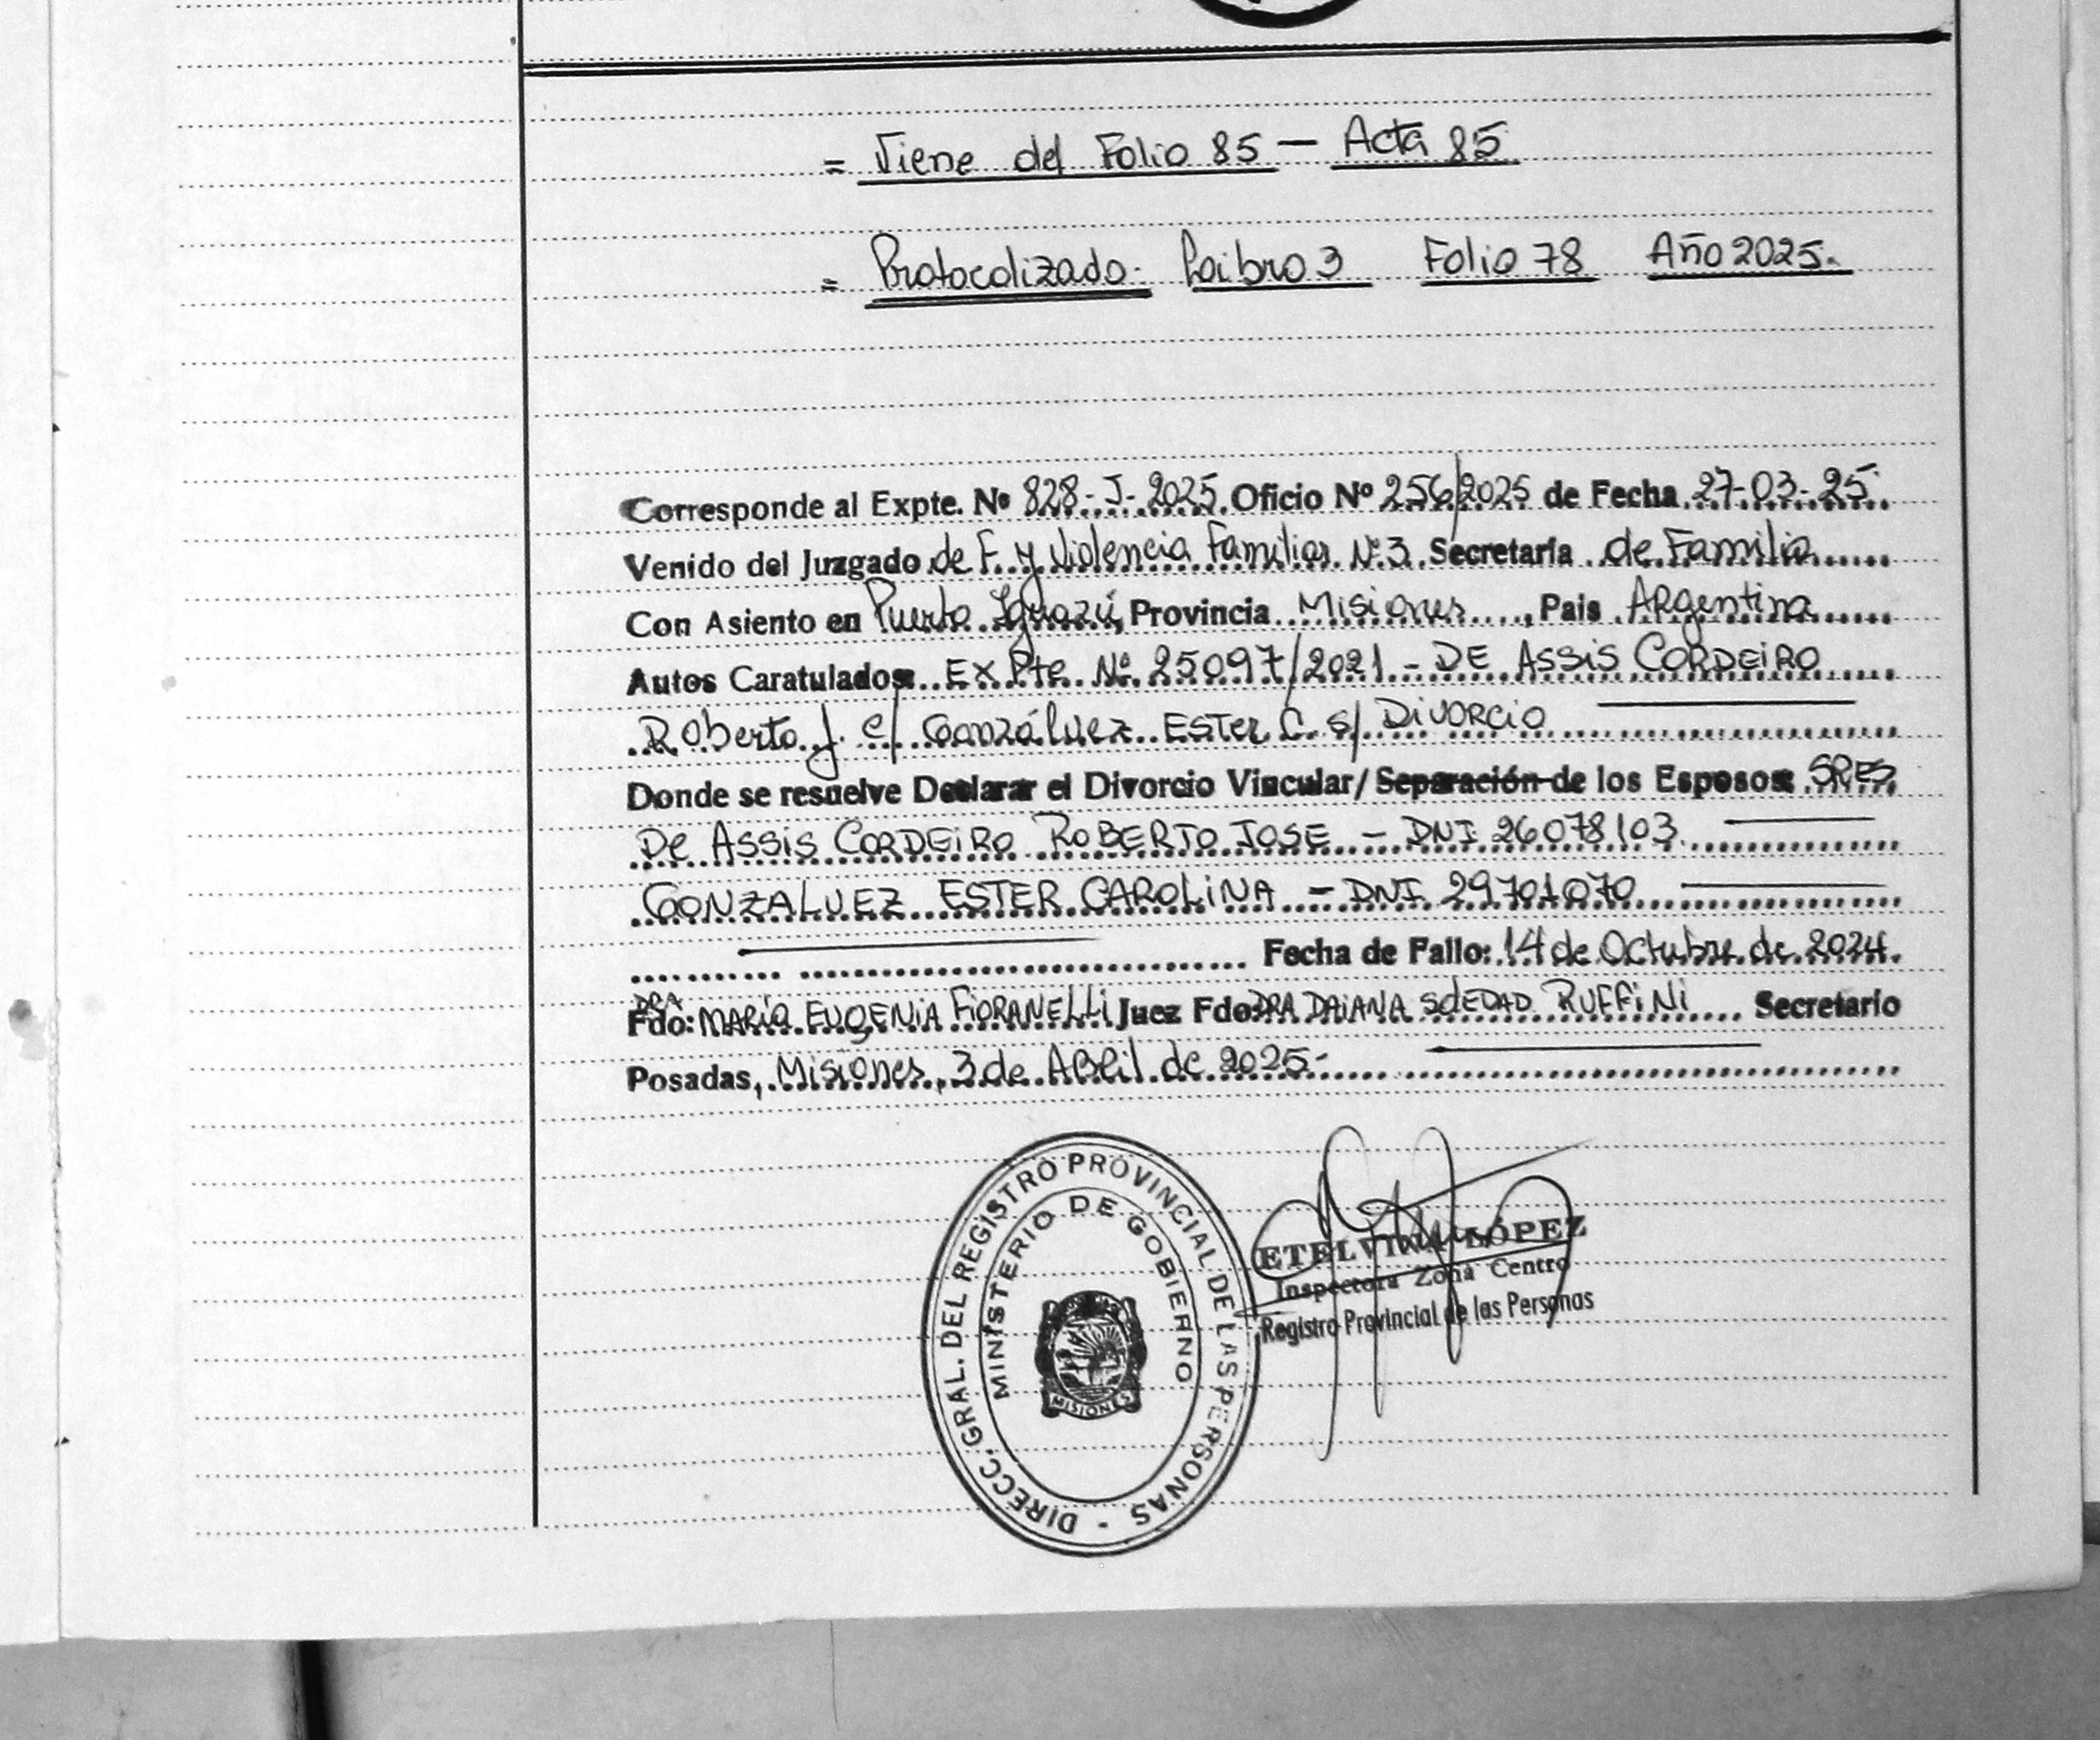 = Viene del Folio 85 — Acta 85
= Protocolizado: Libro 3 Folio 78 Año 2025.
Corresponde al Expte. Nº 828-J-2025. Oficio Nº 256/2025 de Fecha 27-03-25
Venido del Juzgado de F. y Violencia Familiar N:3 Secretaría de Familia
Con Asiento en Puerto Iguazú, Provincia Misiones, Pais Argentina
Autos Caratulados: EXPte. Nº 25097/2021 - DE ASSIS CORDEIRO
Roberto J. c/ Gonzáluez ESTER C. s/ DIVORCIO
Donde se resuelve Declarar el Divorcio Vincular/ Separación de los Esposos: SRES
De ASSIS CORDEIRO ROBERTO JOSE - DNI 26078103
GONZALUEZ ESTER CAROLINA - DNI. 29701070
Fecha de Fallo: 14 de Octubre de 2024.
DRA
Fdo: MARÍA EUGENIA FIORANELLI Juez Fdo: DRA DAIANA SOLEDAD RUFFINI Secretario
Posadas, Misiones, 3 de ABRil de 2025-
DIRECC. GRAL. DEL REGISTRO PROVINCIAL DE LAS PERSONAS -
MINISTERIO DE GOBIERNO
MISIONES
ETELVINA LÓPEZ
Inspectora Zona Centro
Registro Provincial de las Personas